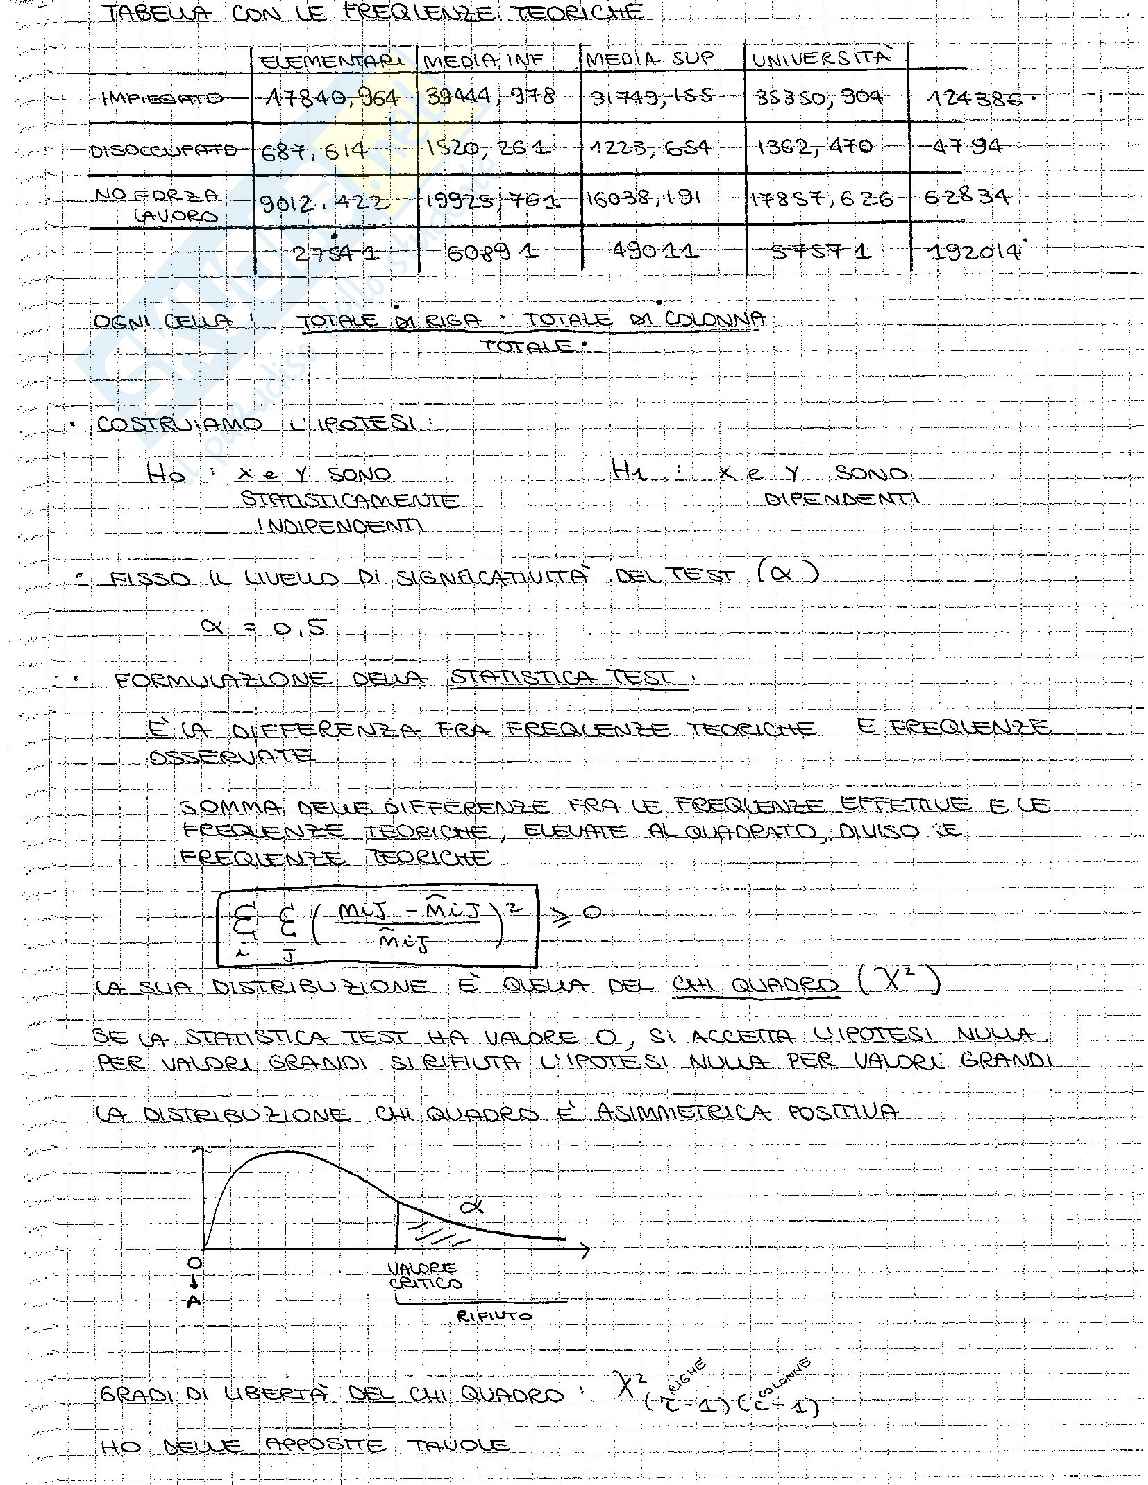 TABELLA CON LE FREQUENZE TEORICHE
ELEMENTARI MEDIA INF MEDIA SUP UNIVERSITÀ
IMPIEGATO 17840,964 39444,978 31749,155 35350,904 124386
DISOCCUPATO 687,614 1520,261 1223,654 1362,470 4794
NO FORZA LAVORO 9012,422 19925,761 16038,191 17857,626 62834
27541 60891 49011 57571 192014
OGNI CELLA : TOTALE DI RIGA · TOTALE DI COLONNA
TOTALE
· COSTRUIAMO L'IPOTESI:
H0 : X e Y SONO H1 : X e Y SONO
STATISTICAMENTE DIPENDENTI
INDIPENDENTI
- FISSO IL LIVELLO DI SIGNIFICATIVITÀ DEL TEST (α)
α = 0,5
· FORMULAZIONE DELLA STATISTICA TEST.
È LA DIFFERENZA FRA FREQUENZE TEORICHE E FREQUENZE
OSSERVATE
SOMMA DELLE DIFFERENZE FRA LE FREQUENZE EFFETTIVE E LE
FREQUENZE TEORICHE, ELEVATE AL QUADRATO, DIVISO LE
FREQUENZE TEORICHE
Σi Σj (mij - m̃ij / m̃ij)² ≥ 0
LA SUA DISTRIBUZIONE È QUELLA DEL CHI QUADRO (χ²)
SE LA STATISTICA TEST HA VALORE 0, SI ACCETTA L'IPOTESI NULLA
PER VALORI GRANDI SI RIFIUTA L'IPOTESI NULLA PER VALORI GRANDI
LA DISTRIBUZIONE CHI QUADRO È ASIMMETRICA POSITIVA
α
0
↓
A
VALORE
CRITICO
RIFIUTO
RIGHE COLONNE
GRADI DI LIBERTÀ DEL CHI QUADRO : χ² (r-1)(c-1)
HO DELLE APPOSITE TAVOLE